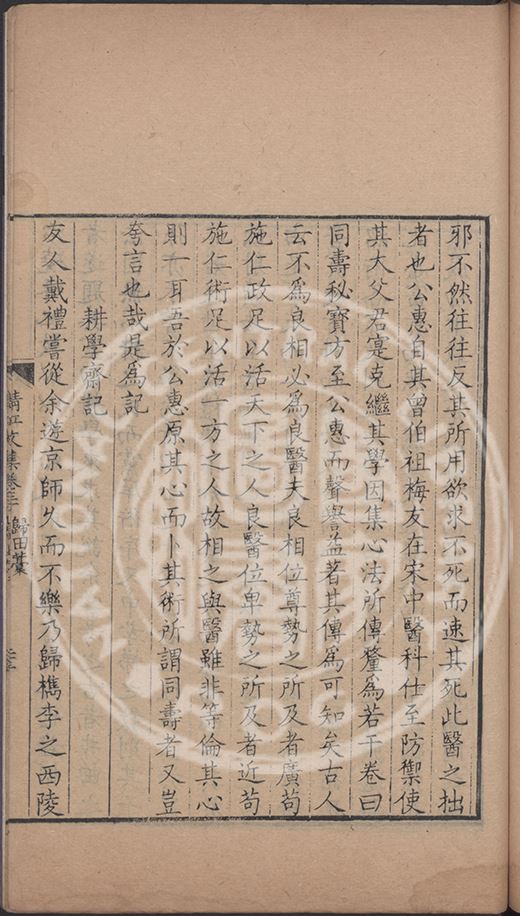 邪不然往往反其所用欲求不死而速其死此醫之拙
者也公惠自其曾伯祖梅友在宋中醫科仕至防禦使
其大父君寔克繼其學因集心法所傳釐為若干卷曰
同壽秘寶方至公惠而聲譽益著其傳為可知矣古人
云不為良相必為良醫夫良相位尊勢之所及者廣苟
施仁政足以活天下之人良醫位卑勢之所及者近苟
施仁術足以活一方之人故相之與醫雖非等倫其心
則一耳吾於公惠原其心而卜其術所謂同壽者又豈
夸言也哉是為記
耕學齋記
友人戴禮嘗從余遊京師久而不樂乃歸檇李之西陵
清江文集卷三 歸田藁